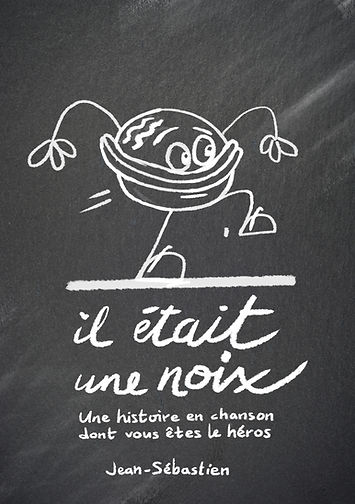 il était
une noix
Une histoire en chanson
dont vous êtes le héros
Jean-Sébastien